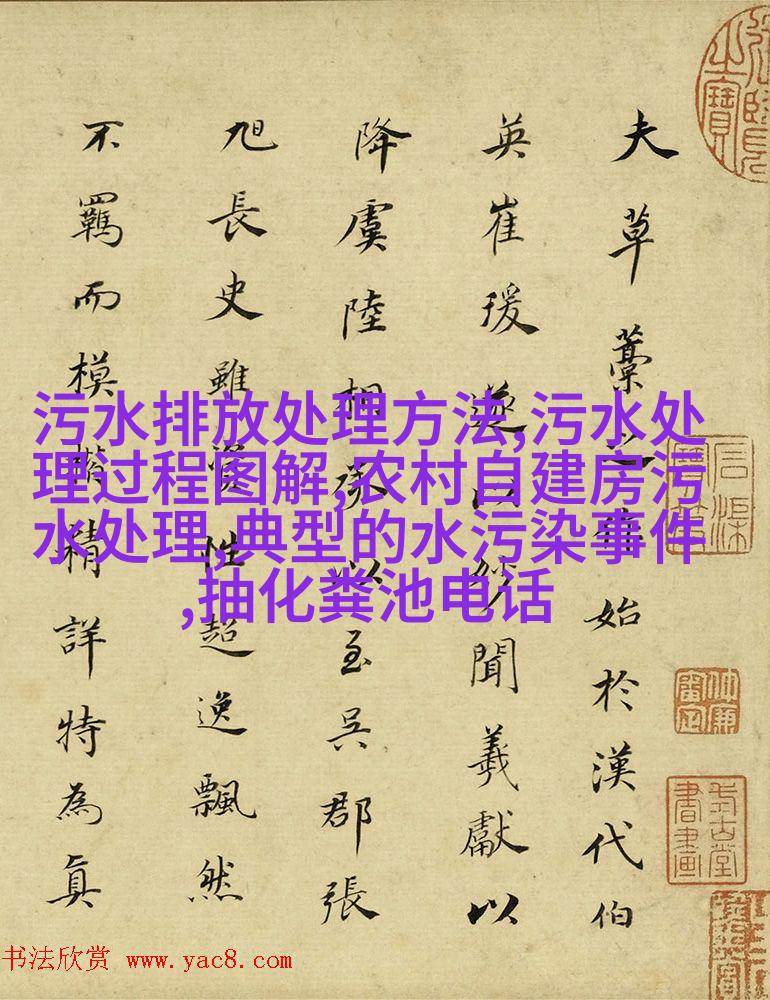 夫草藁之始於漢代伯
英崔瑗遂以妙聞羲獻以
降虞陸相承以至吳郡張
旭長史雖資性超逸飄然
不羈而模楷精詳特為真
污水排放处理方法,污水处
理过程图解,农村自建房污
水处理,典型的水污染事件
,抽化粪池电话
书法欣赏 www.yac8.com